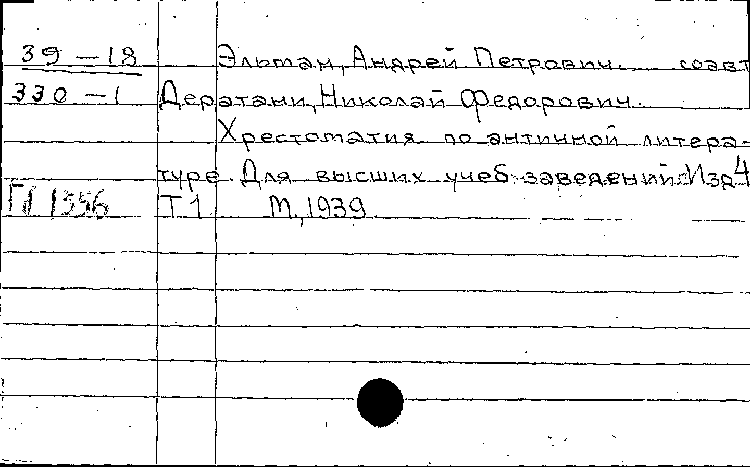 39-18 Эльман, Андрей Петрович. соавт
330-1 Дератани, Николай Федорович.
Хрестоматия по античной литера-
туре. Для высших учеб. заведений. Изд 4
1356 Т 1 М, 1939